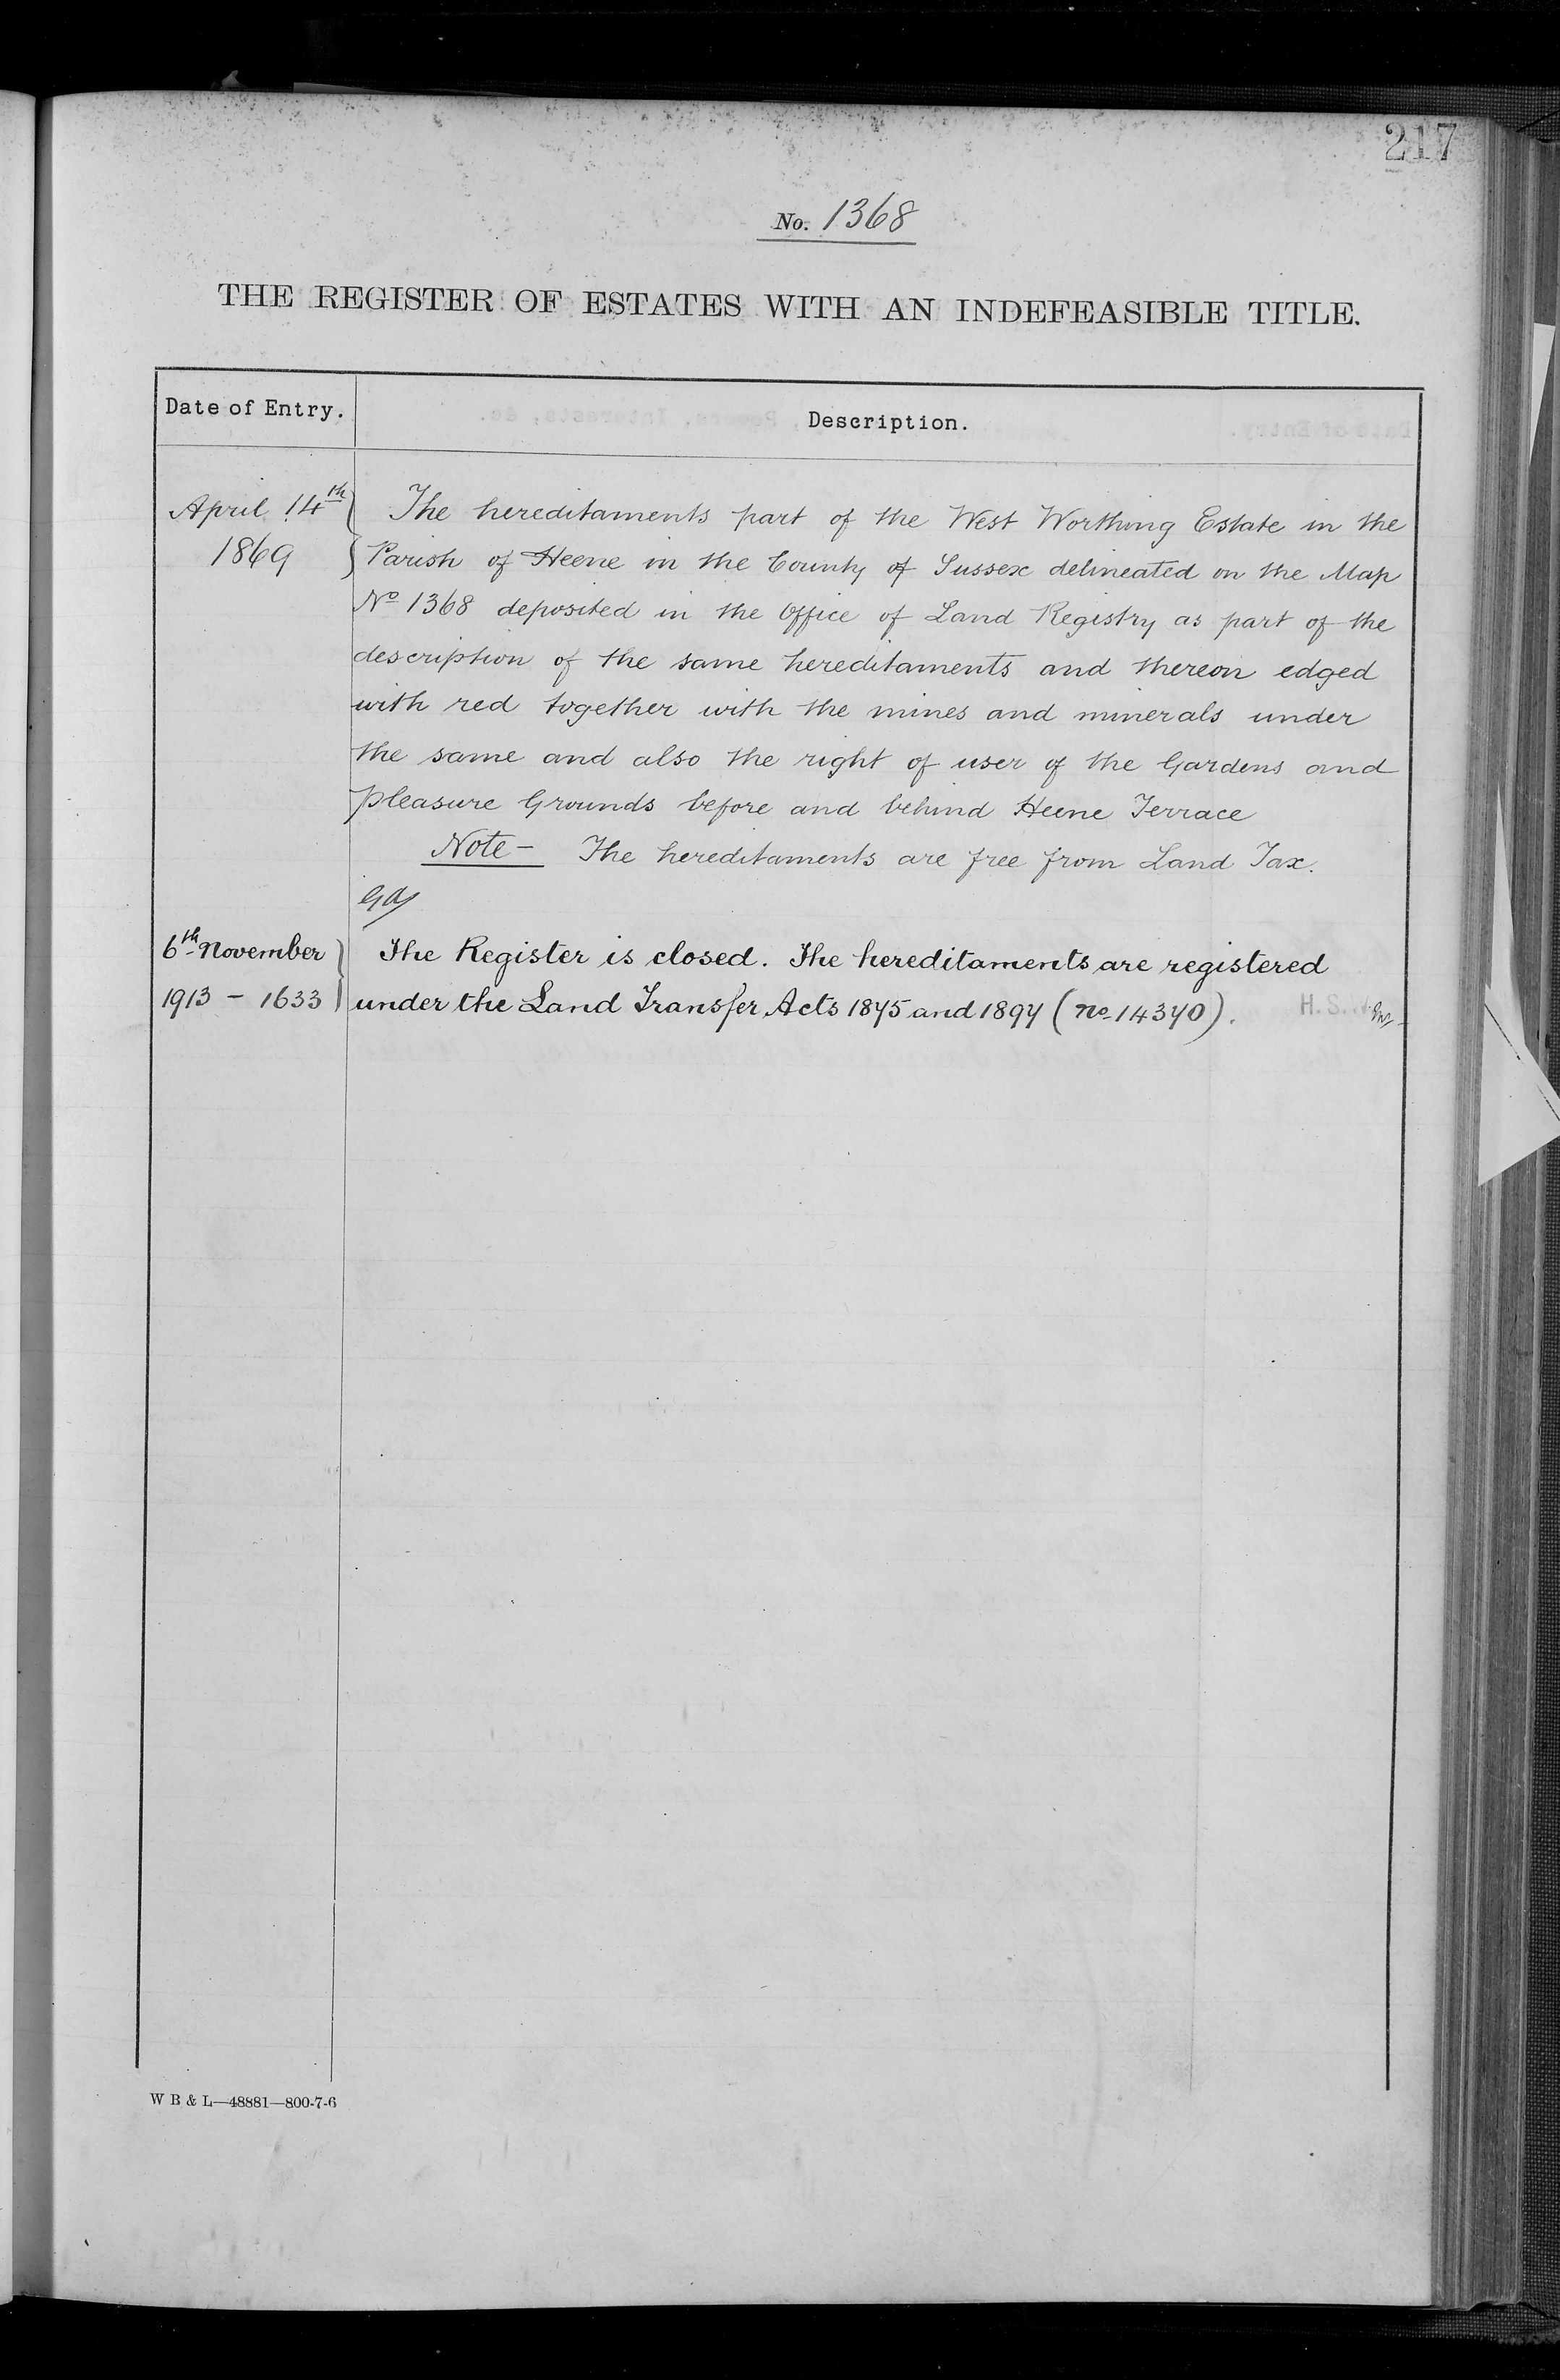 217
No. 1368
THE REGISTER OF ESTATES WITH AN INDEFEASIBLE TITLE.
Date of Entry.
Description.
April 14th 1869
The hereditaments part of the West Worthing Estate in the
Parish of Heene in the County of Sussex delineated on the Map
No 1368 deposited in the Office of Land Registry as part of the
description of the same hereditaments and thereon edged
with red together with the mines and minerals under
the same and also the right of user of the Gardens and
pleasure Grounds before and behind Heene Terrace
Note — The hereditaments are free from Land Tax.
6th November
1913 – 1633
The Register is closed. The hereditaments are registered
under the Land Transfer Acts 1875 and 1897 (No 14370).
H. S.
W B & L—48881—800-7-6